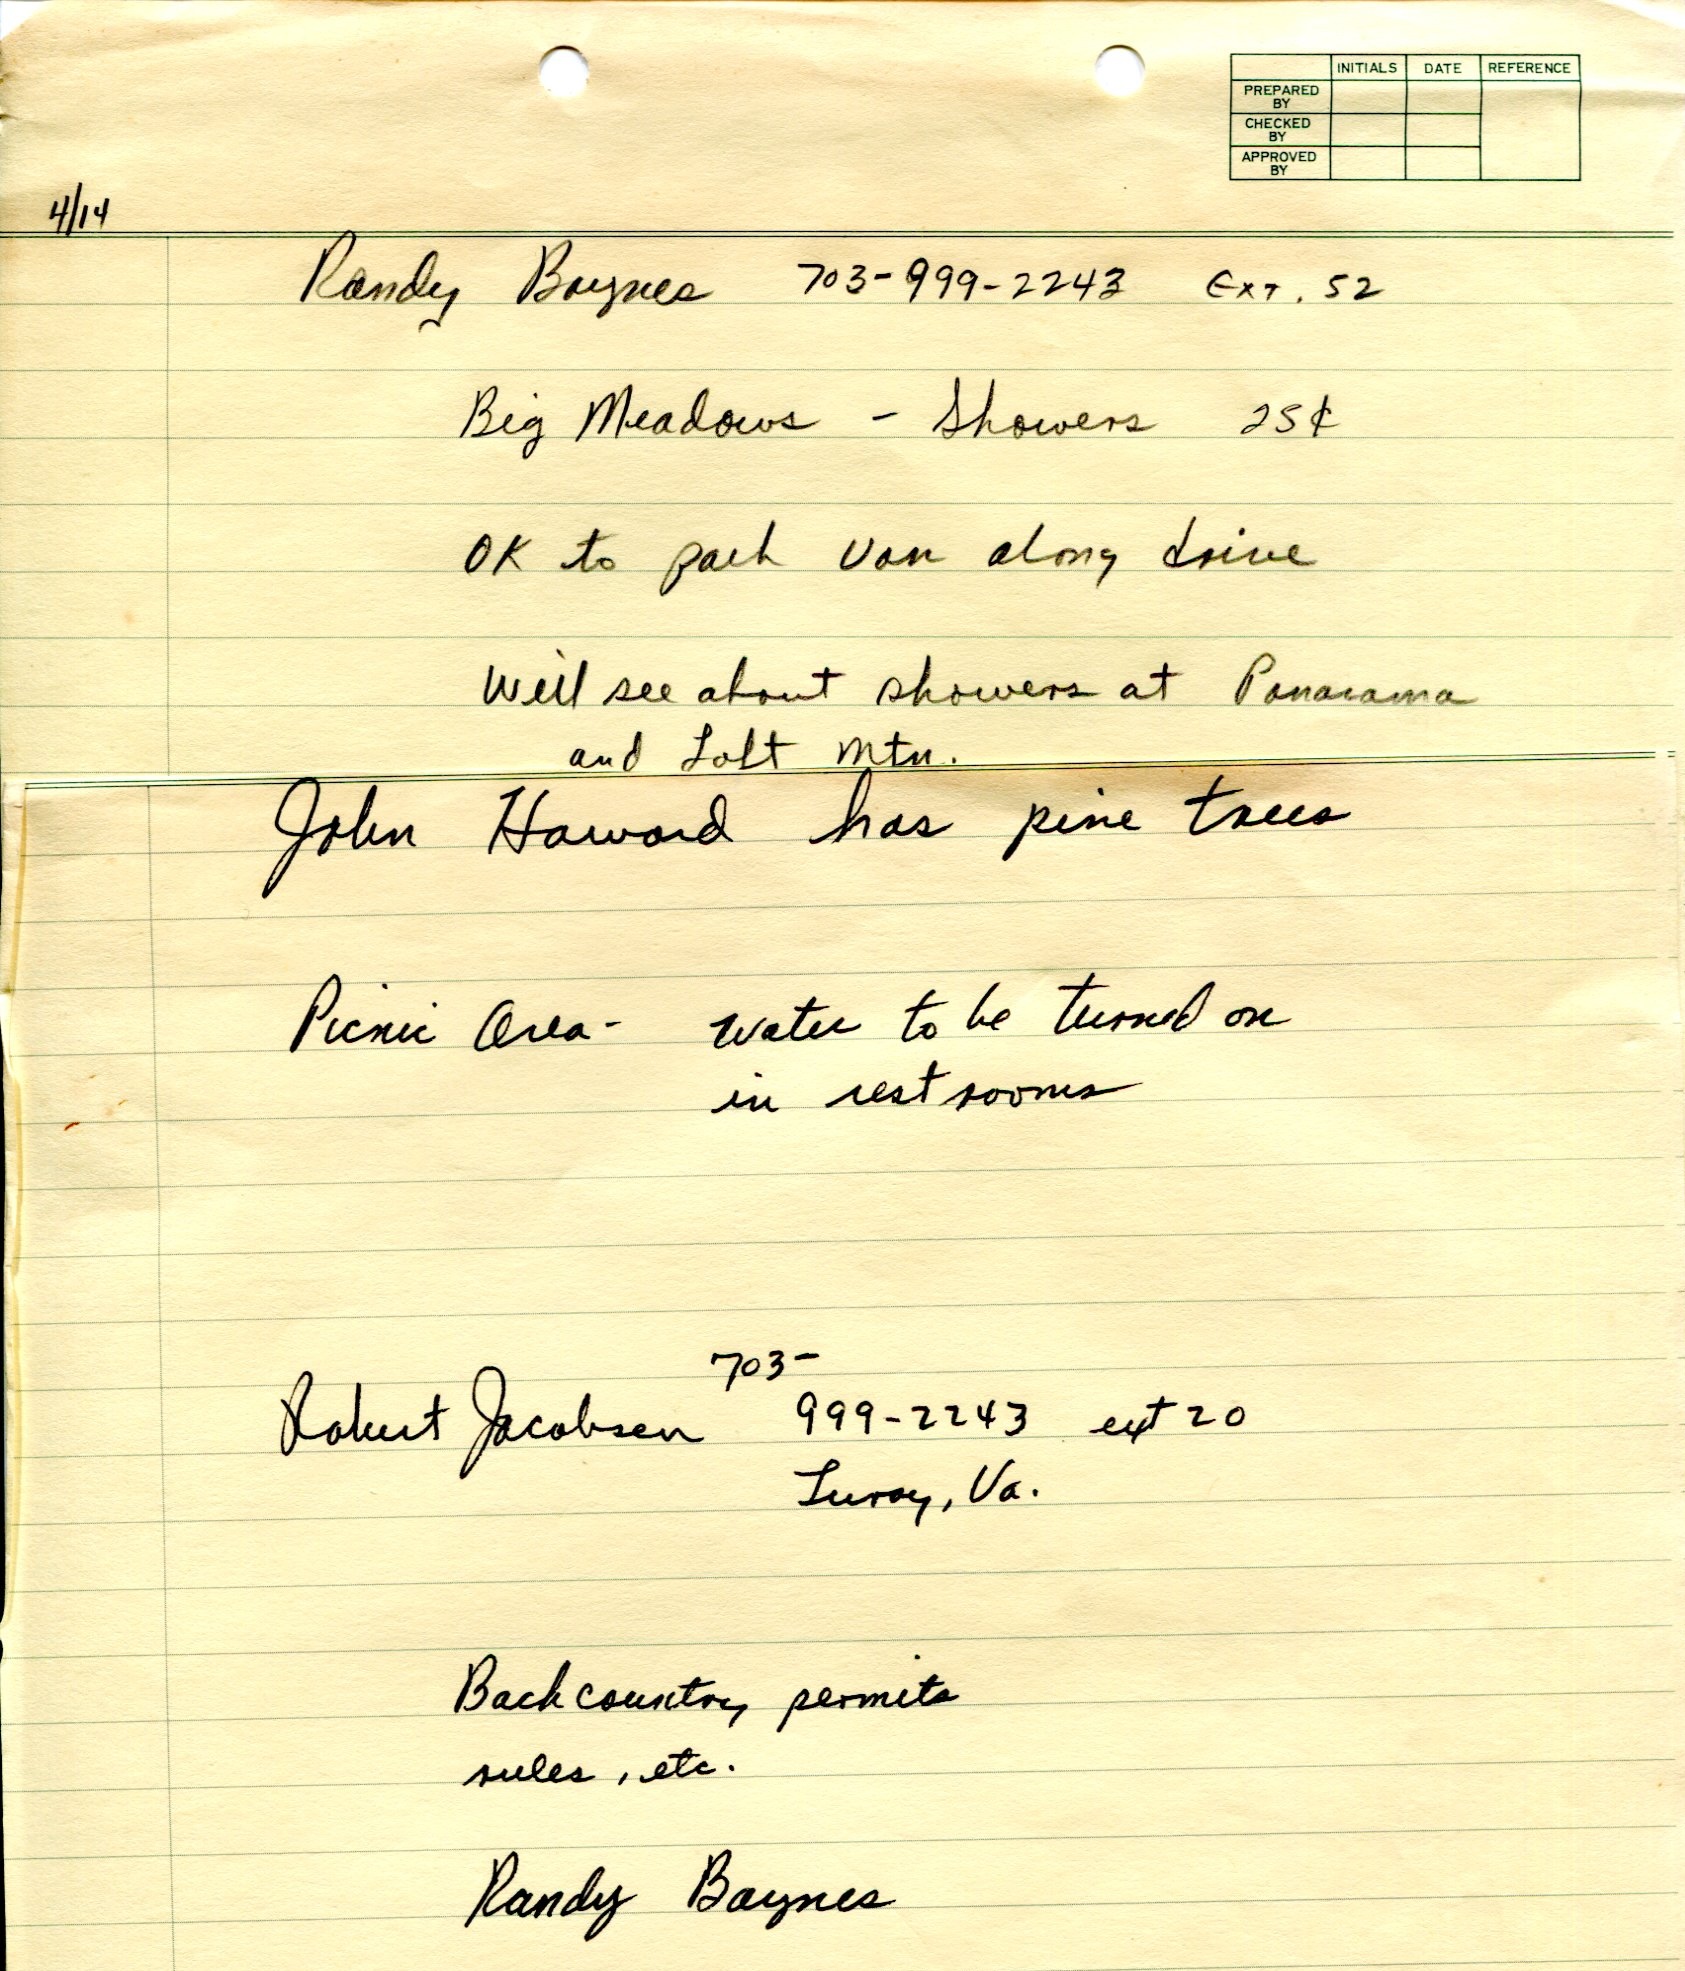 INITIALS DATE REFERENCE
PREPARED
BY
CHECKED
BY
APPROVED
BY
4/14
Randy Baynes 703-999-2243 Ext. 52
Big Meadows - Showers 25¢
OK to park van along drive
We'll see about showers at Panarama
and Loft Mtn.
John Howard has pine trees
Picnic Area - water to be turned on
in rest rooms
703-
Robert Jacobsen 999-2243 ext 20
Luray, Va.
Backcountry permits
rules, etc.
Randy Baynes